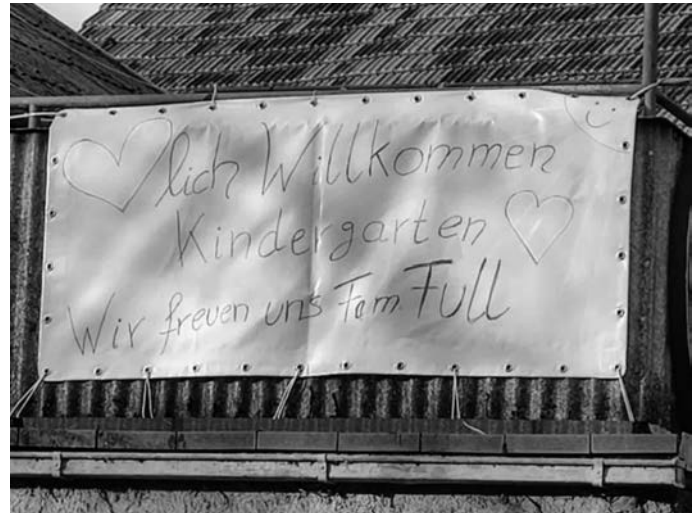 ♥lich Willkommen
Kindergarten ♥
Wir freuen uns Fam. Full